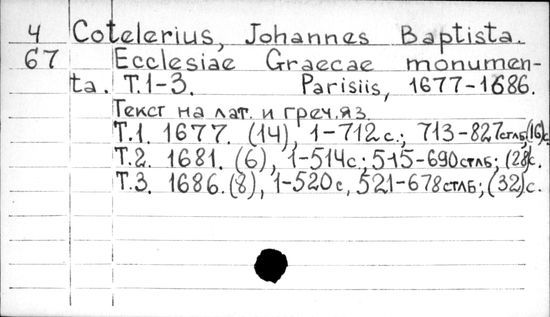 4 Cotelerius, Johannes Baptista.
67 Ecclesiae Graecae monumen-
ta. Т.1-3. Parisiis, 1677-1686.
Текст на лат. и греч.яз.
Т.1. 1677. (14), 1-712 с.; 713-827 стлб; (16)с.
Т.2. 1681. (6), 1-514с; 515-690 стлб; (28)с.
Т.3. 1686. (8), 1-520 с, 521-678 стлб; (32) с.